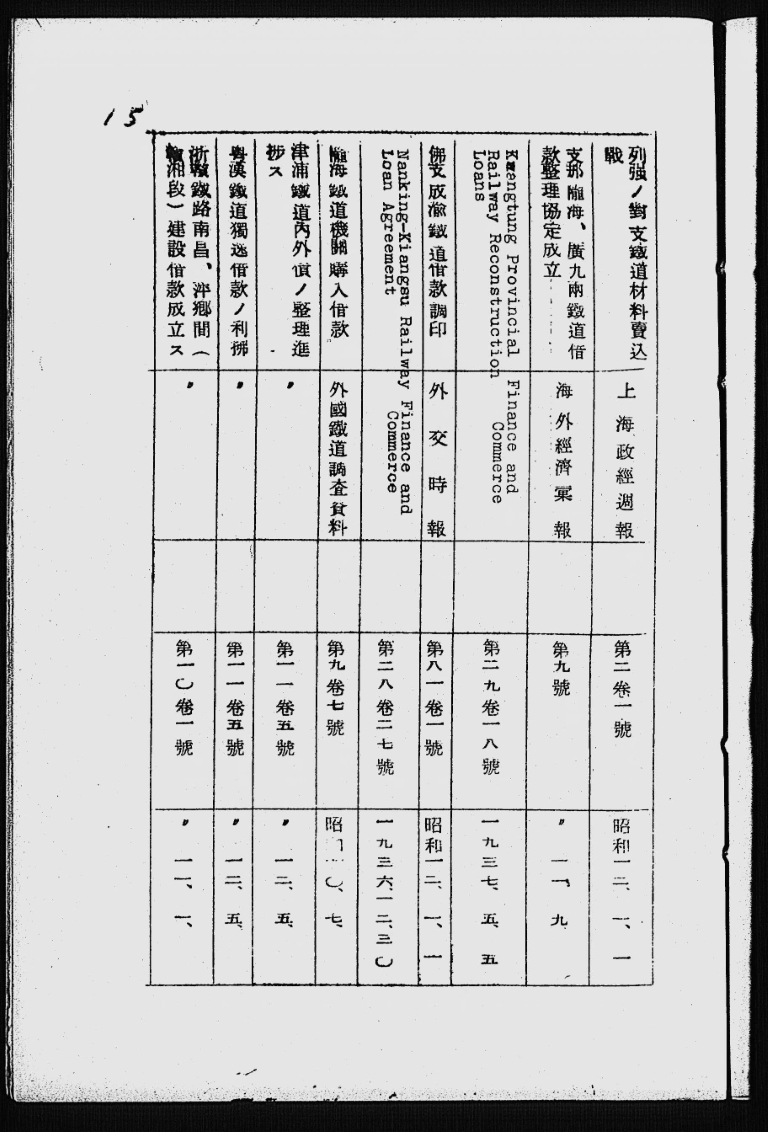 15
列强ノ對支鐵道材料賣込
戰
上海政經週報
第二卷一號
昭和一二、一、一
支那隴海、廣九兩鐵道借
款整理協定成立
海外經濟彙報
第九號
〃 一一、九
Kwangtung Provincial
Railway Reconstruction
Loans
Finance and
Commerce
第二九卷一八號
一九三七、五、五
佛支成渝鐵道借款調印
外交時報
第八一卷一號
昭和一二、一、一
Nanking-Kiangsu Railway
Loan Agreement
Finance and
Commerce
第二八卷二七號
一九三六、一二、三〇
隴海鐵道機關購入借款
外國鐵道調査資料
第九卷七號
昭和一〇、七、
津浦鐵道內外債ノ整理進
捗ス
〃
第一一卷五號
〃 一二、五、
粤漢鐵道獨逸借款ノ利拂
〃
第一一卷五號
〃 一二、五、
浙贛鐵路南昌、萍鄉間(
贛湘段)建設借款成立ス
〃
第一〇卷一號
〃 一一、一、